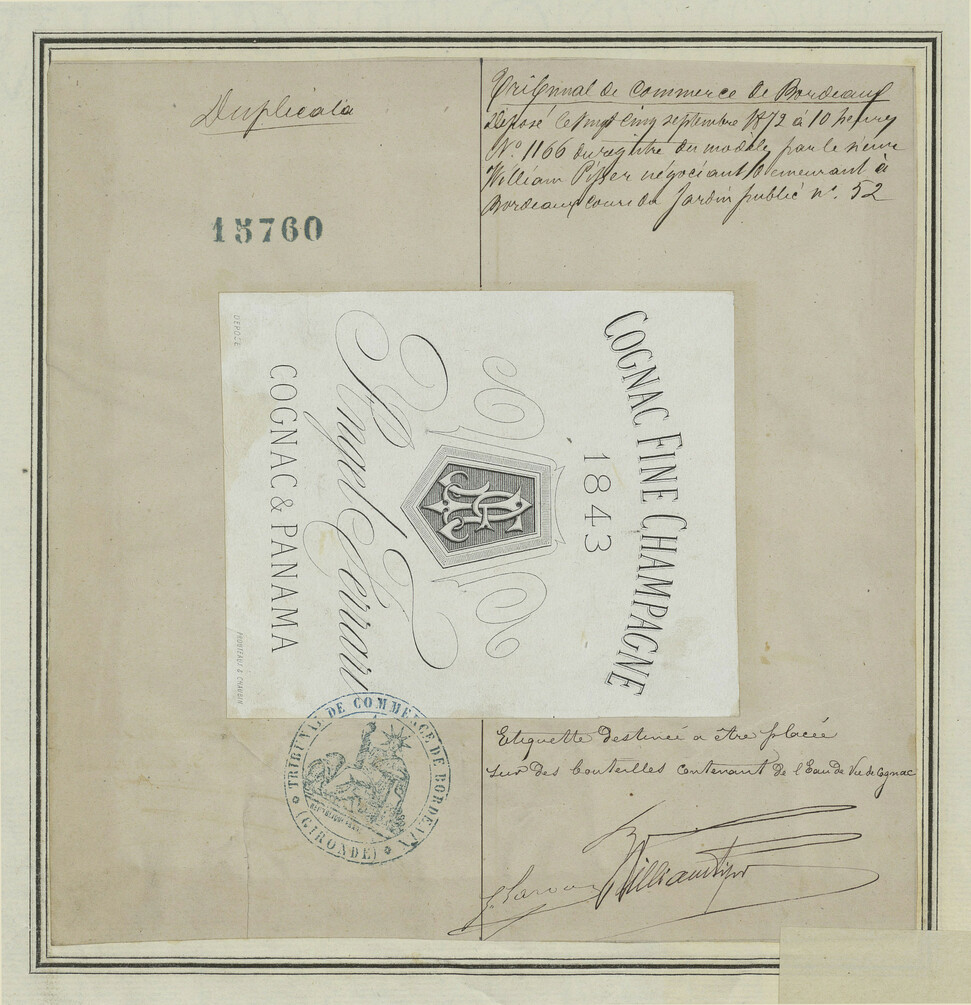 Duplicata
15760
Tribunal de commerce de Bordeaux
Déposé le vingt cinq septembre 1872 à 10 heures
N° 1166 du registre du modèle, par le sieur
William Pifser négociant demeurant à
Bordeaux cours du Jardin public n°. 52
COGNAC FINE CHAMPAGNE
1843
Angel Ferrari
COGNAC & PANAMA
DEPOSE
TRIBUNAL DE COMMERCE DE BORDEAUX
(GIRONDE)
Etiquette destinée a être placée
sur des bouteilles contenant de l'Eau de Vie de Cognac